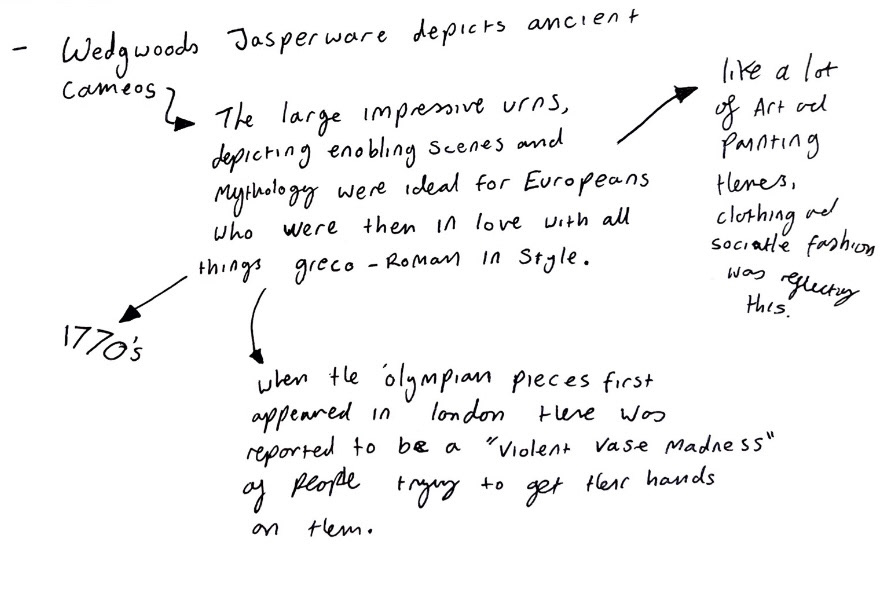 - Wedgwoods Jasperware depicts ancient
Cameos
The large impressive urns,
depicting enobling scenes and
Mythology were ideal for Europeans
who were then in love with all
things greco-Roman in Style.
like a lot
of Art and
Painting
themes,
clothing and
fashion
was reflecting
this.
1770's
when the 'olympian pieces first
appeared in london there was
reported to be a "Violent Vase Madness"
of people trying to get their hands
on them.